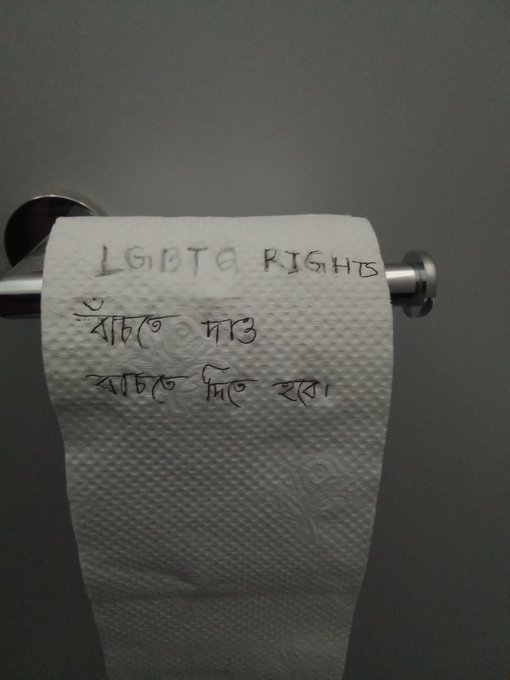 LGBTQ RIGHTS
বাঁচতে দাও
বাচতে দিতে হবে।